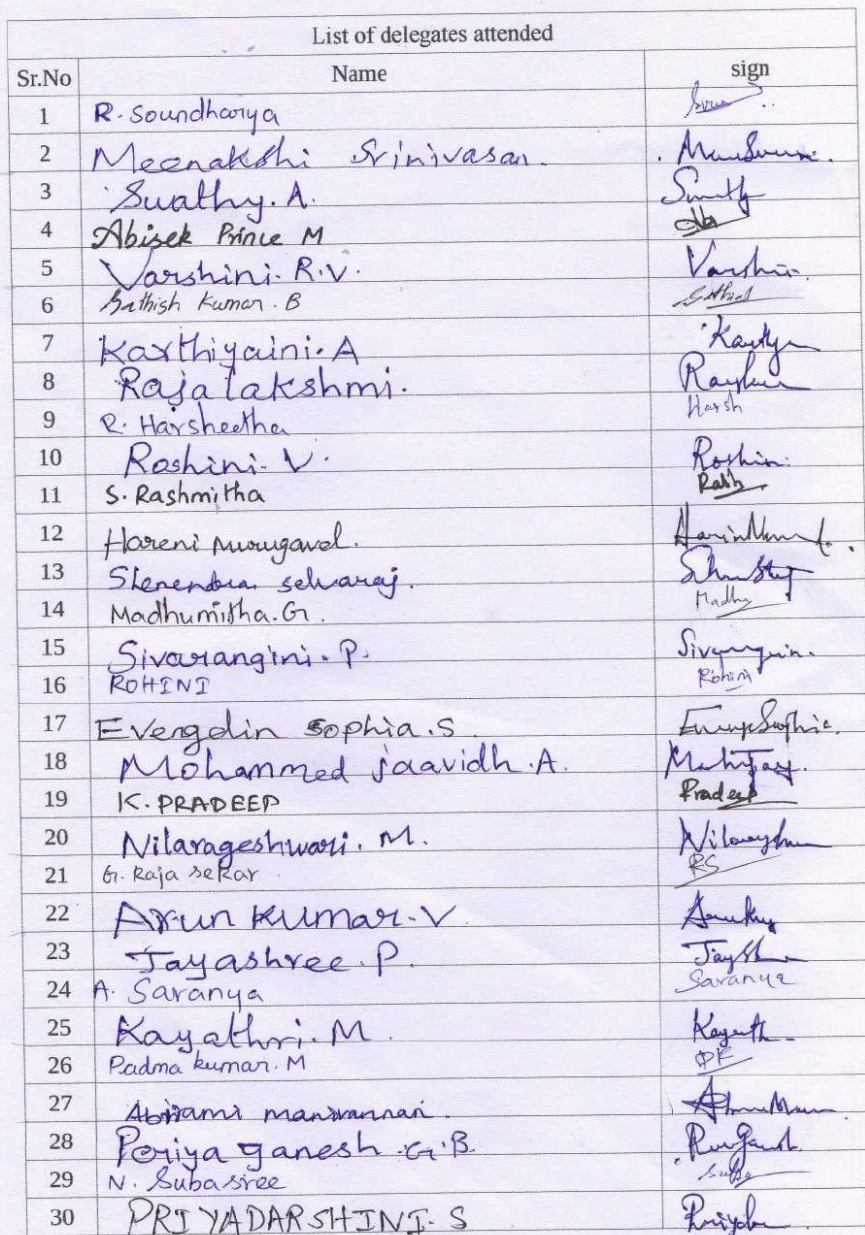 List of delegates attended
Sr.No Name sign
1 R. Soundharya
2 Meenakshi Srinivasan.
3 Swathy. A.
4 Abisek Prince M
5 Varshini. R.V.
6 Sathish Kumar. B
7 Karthiyaini. A
8 Rajalakshmi.
9 R. Harsheetha Harsh
10 Roshini. V. Roshin.
11 S. Rashmitha Rash
12 Hareni Murugavel.
13 selvaraj.
14 Madhumitha. G. Madhu
15 Sivarangini. P.
16 ROHINI Rohini
17 Evengelin Sophia. S
18 Mohammed jaavidh. A.
19 K. PRADEEP Pradeep
20 Nilarageshwari. M.
21 G. Raja sekar RS
22 Arun Kumar. V
23 Jayashree. P.
24 A. Saranya Saranya
25 Kayathri. M.
26 Padma kumar. M PK
27 Abirami manivannan.
28 Poriya ganesh. G.B.
29 N. Subasree
30 PRIYADARSHINI. S